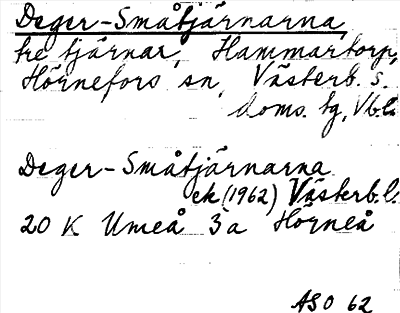 Deger-Småtjärnarna,
tre tjärnar, Hammartorp,
Hörnefors sn, Västerb. s.
doms. tg, Vb.l.
Deger-Småtjärnarna
ek (1962) Västerb.l.
20 K Umeå 3a Hörneå
ASO 62